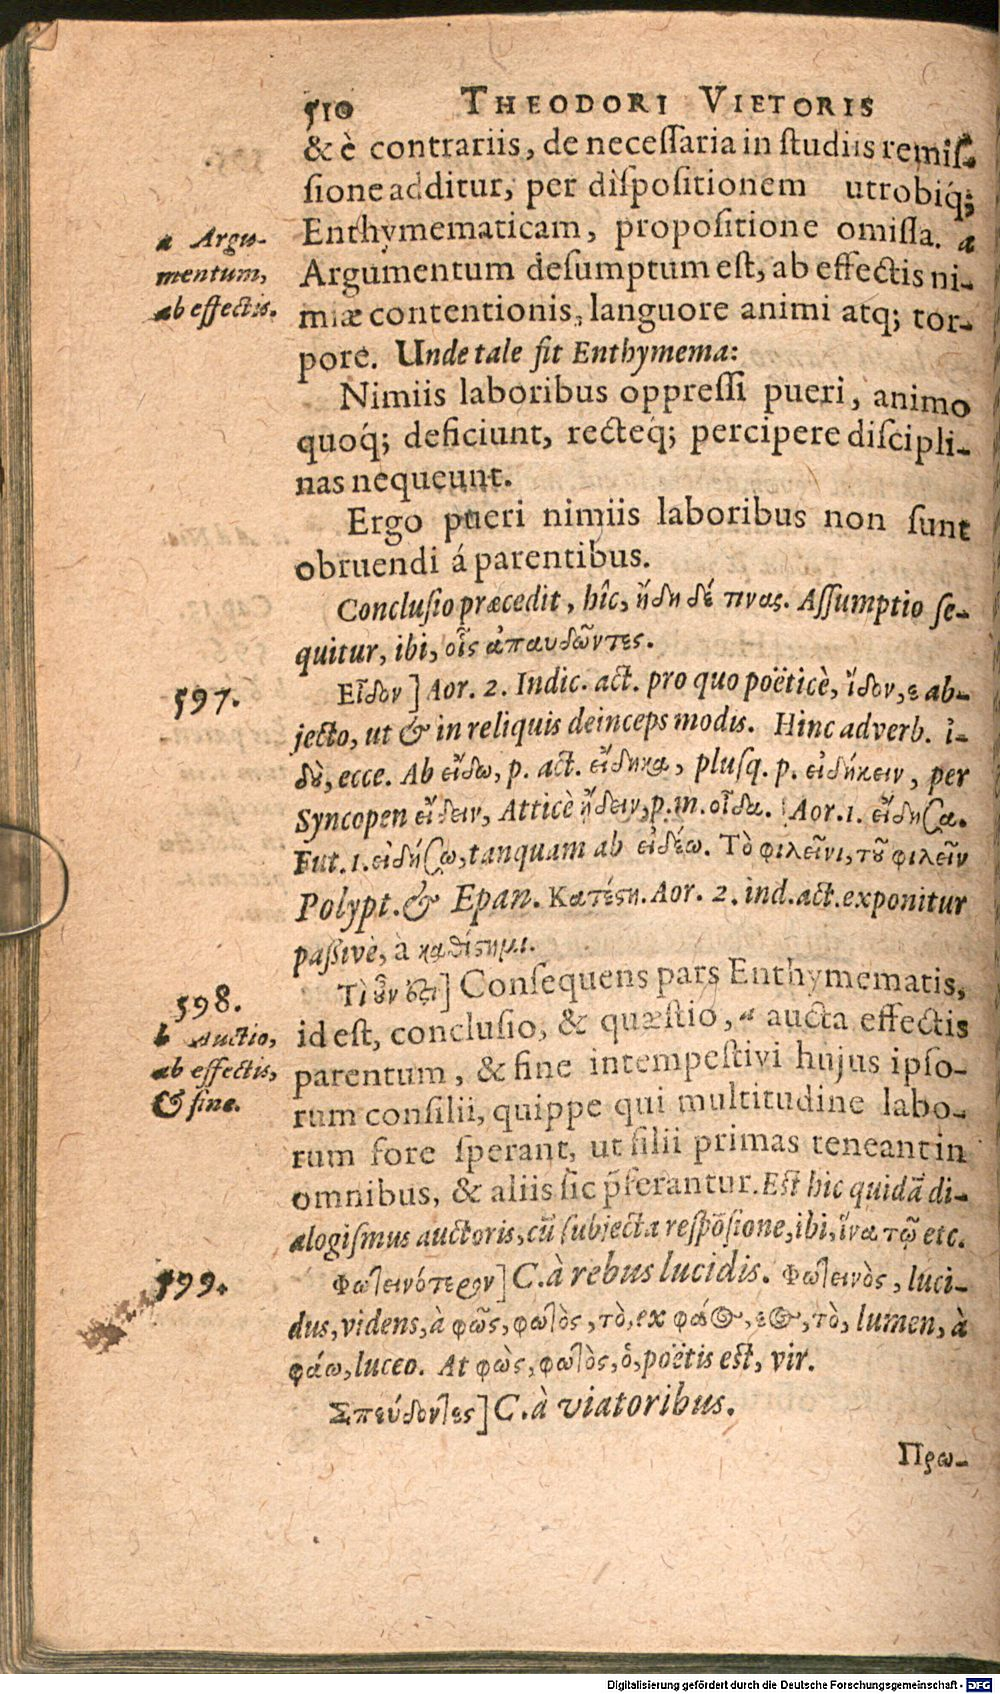 510 THEODORI VIETORIS
& è contrariis, de necessaria in studiis remis-
sione additur, per dispositionem utrobiq́;
Enthymematicam, propositione omissa. a
a Argu-
mentum,
ab effectis.
Argumentum desumptum est, ab effectis ni-
miæ contentionis, languore animi atq; tor-
pore. Unde tale fit Enthymema:
Nimiis laboribus oppressi pueri, animo
quoq́; deficiunt, recteq́; percipere discipli-
nas nequeunt.
Ergo pueri nimiis laboribus non sunt
obruendi á parentibus.
Conclusio præcedit, hîc, ἤδη δέ τινας. Assumptio se-
quitur, ibi, οἷς ἀπαυδῶντες.
597.
Εἶδον] Aor. 2. Indic. act. pro quo poëticè, ἴδον, ε ab-
jecto, ut & in reliquis deinceps modis. Hinc adverb. ἰ-
δὺ, ecce. Ab εἴδω, p. act. εἴδηκα, plusq. p. εἰδήκειν, per
Syncopen εἴδειν, Atticè ᾔδειν, p. m. οἶδα. Aor. 1. εἴδησα.
Fut. 1. εἰδήσω, tanquam ab εἰδέω. Τὸ φιλεῖν ι, τοῦ φιλεῖν
Polypt. & Epan. Κατέστη. Aor. 2. ind. act. exponitur
passivè, à καθίστημι.
598.
Τί οὖν ἐστι] Consequens pars Enthymematis,
b Auctio,
ab effectis,
& fine.
id est, conclusio, & quæstio, aucta effectis
parentum, & fine intempestivi hujus ipso-
rum consilii, quippe qui multitudine labo-
rum fore sperant, ut filii primas teneant in
omnibus, & aliis sic p̃ferantur. Est hic quidã di-
alogismus auctoris, cũ subjecta respõsione, ibi, ἵνα τῷ etc.
599.
Φωτεινότερον] C. à rebus lucidis. Φωτεινὸς, luci-
dus, videns, à φῶς, φωτὸς, τὸ, ex φάος, εος, τὸ, lumen, à
φάω, luceo. At φὼς, φωτὸς, ὁ, poëtis est, vir.
Σπεύδοντες] C. à viatoribus.
Πρω-
Digitalisierung gefördert durch die Deutsche Forschungsgemeinschaft - DFG